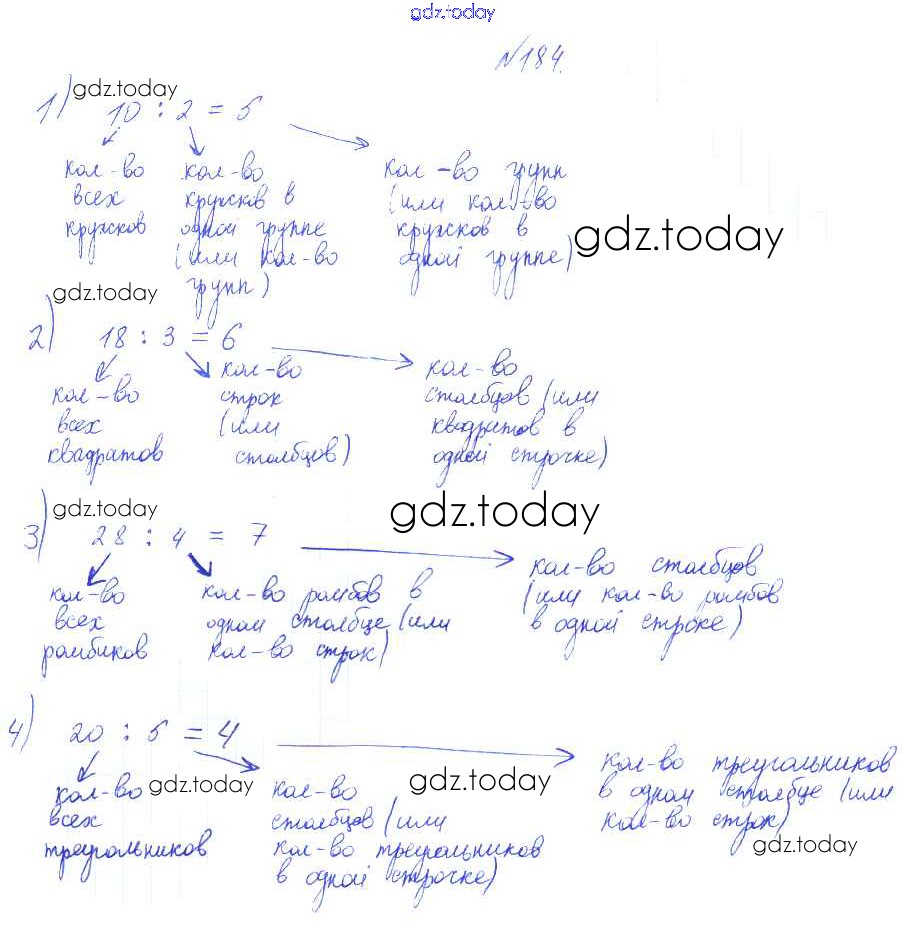 gdz.today
№184.
gdz.today
1) 10 : 2 = 5
кол-во кол-во кол-во групп
всех кружков в (или кол-во
кружков одной группе кружков в gdz.today
(или кол-во одной группе)
групп)
gdz.today
2) 18 : 3 = 6
кол-во кол-во
кол-во строк столбцов (или
всех (или квадратов в
квадратов столбцов) одной строчке)
gdz.today gdz.today
3) 28 : 4 = 7
кол-во столбцов
кол-во кол-во ромбов в (или кол-во ромбов
всех одном столбце (или в одной строке)
ромбиков кол-во строк)
4) 20 : 5 = 4
кол-во треугольников
gdz.today gdz.today в одном столбце (или
кол-во кол-во кол-во строк)
всех столбцов (или
gdz.today
треугольников кол-во треугольников
в одной строчке)